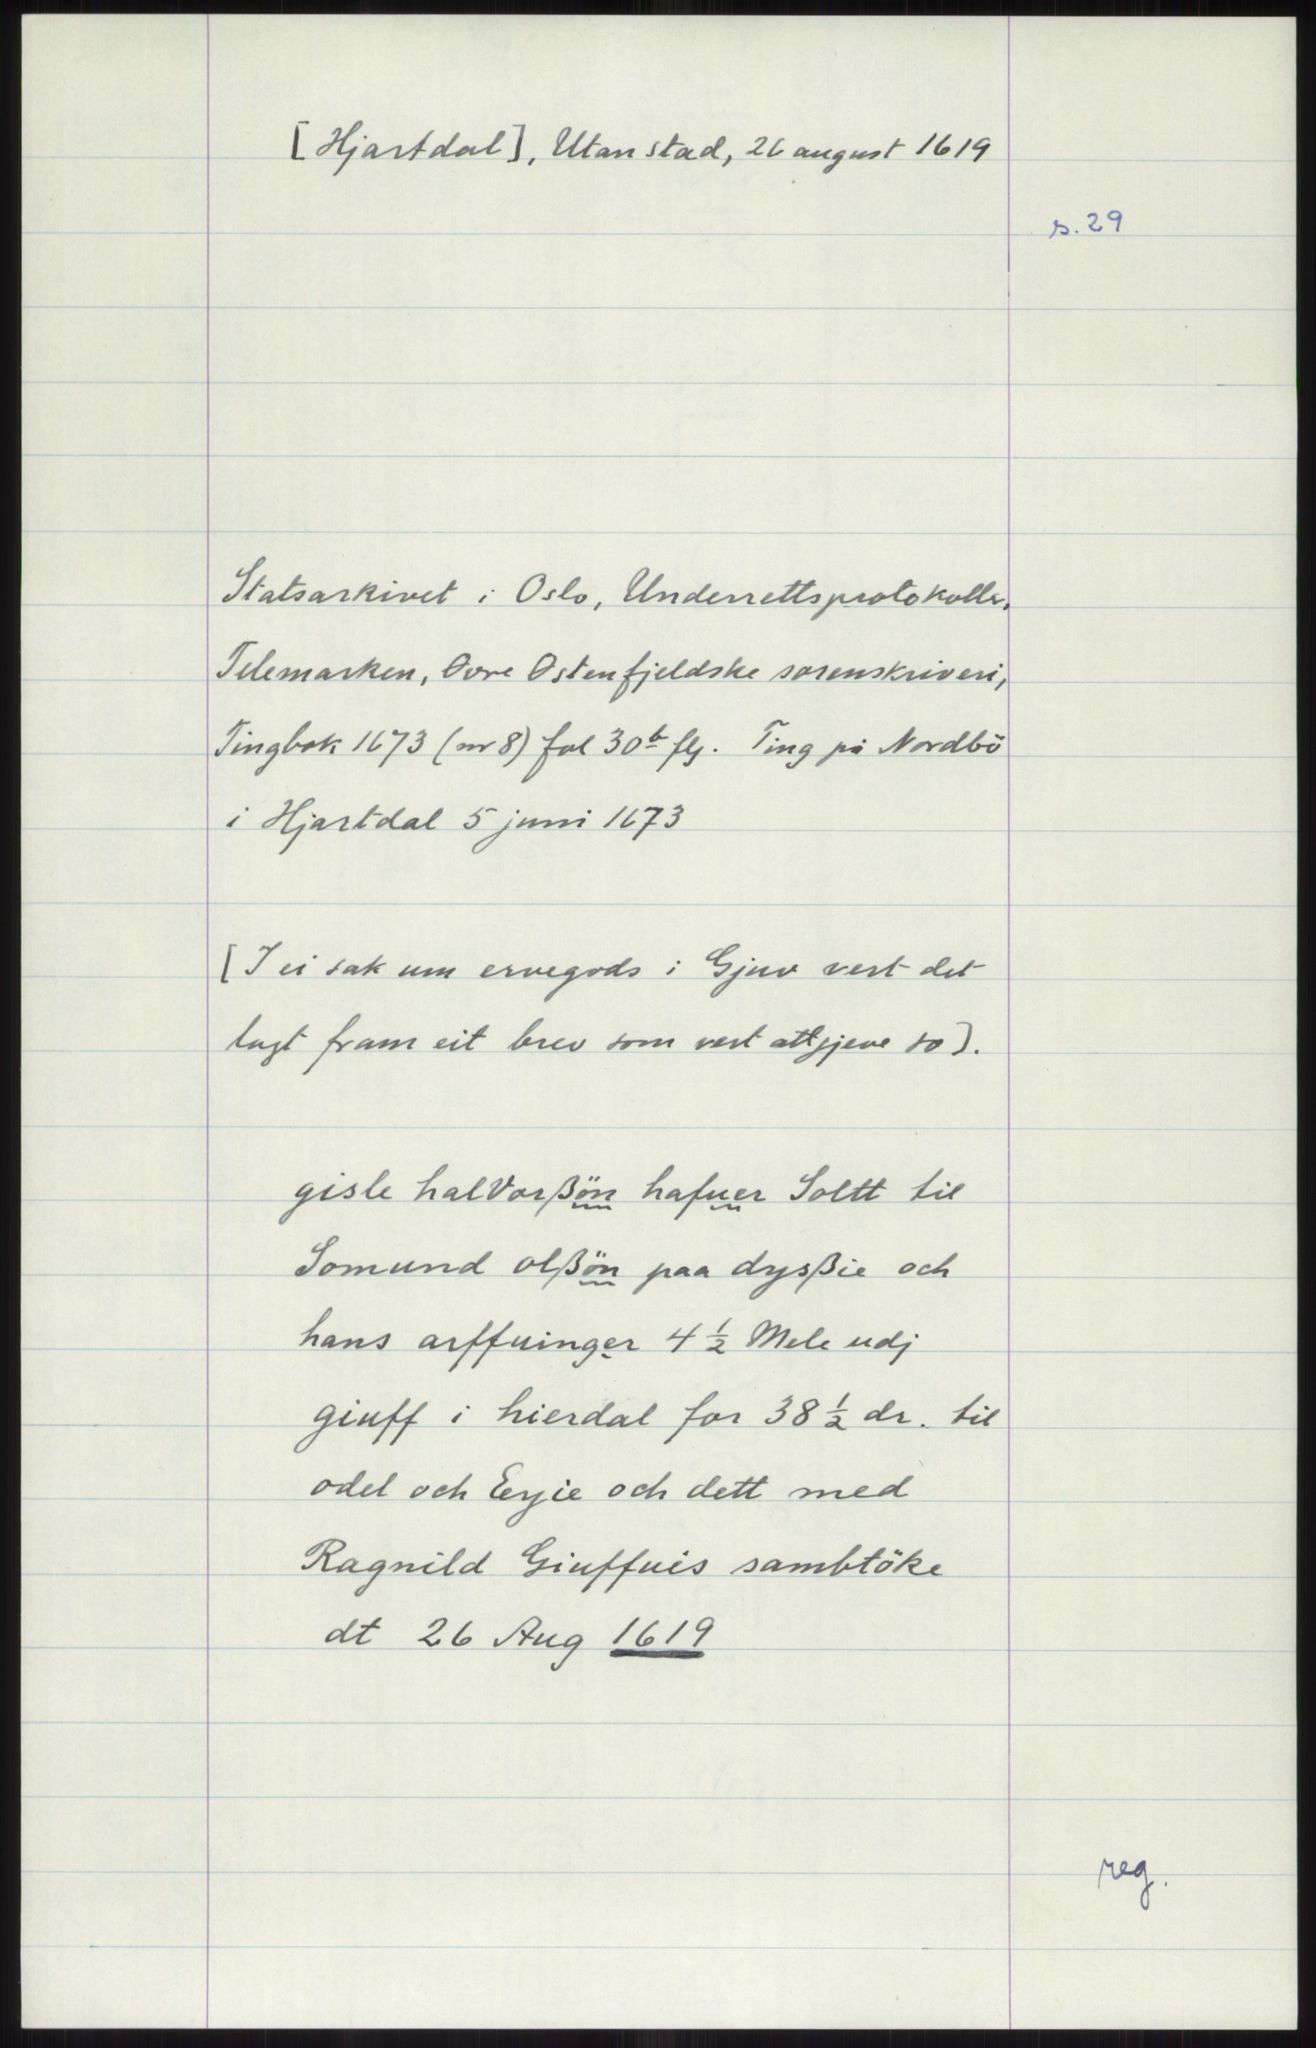 [Hjartdal], Utan stad, 26 august 1619
s. 29
Statsarkivet i Oslo, Underrettsprotokolle,
Telemarken, Øvre Østenfjeldske sorenskriveri,
Tingbok 1673 (nr 8) fol 30b flg. Ting på Nordbö
i Hjartdal 5 juni 1673
[I ei sak um ervegods i Gjuv vert det
lagt fram eit brev som vert attgjeve so].
gisle halVorßön hafuer Soltt til
Somund olßön paa dysßie och
hans arffuinger 4 1/2 Mele udj
giuff i hierdal for 38 1/2 dr. til
odel och Eyie och dett med
Ragnild Giuffuis sambtöke
dt 26 Aug 1619
reg.